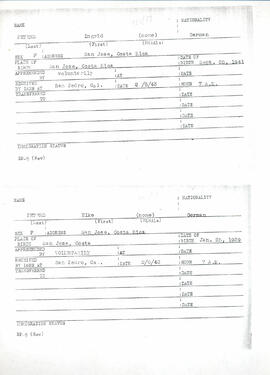 NAME NATIONALITY
Ingrid (none) German
(Last) (First) (Middle)
SEX F ADDRESS San Jose, Costa Rica DATE OF
PLACE OF
BIRTH San Jose, Costa Rica BIRTH Sept. 20, 1941
APPREHENDED
BY Voluntarily AT DATE
RECEIVED
BY INSN AT San Pedro, Cal. DATE 2/6/43 HOUR 7 A.M.
TRANSFERRED
TO DATE
DATE
DATE
DATE
IMMIGRATION STATUS
NAME NATIONALITY
Elke (none) German
(Last) (First) (Middle)
SEX F ADDRESS San Jose, Costa Rica DATE OF
PLACE OF
BIRTH San Jose, Costa BIRTH
APPREHENDED
BY VOLUNTARILY AT DATE
RECEIVED
BY INSN AT San Pedro, Ca.. DATE 2/6/43 HOUR 7 A.M.
TRANSFERRED
TO DATE
DATE
DATE
DATE
IMMIGRATION STATUS